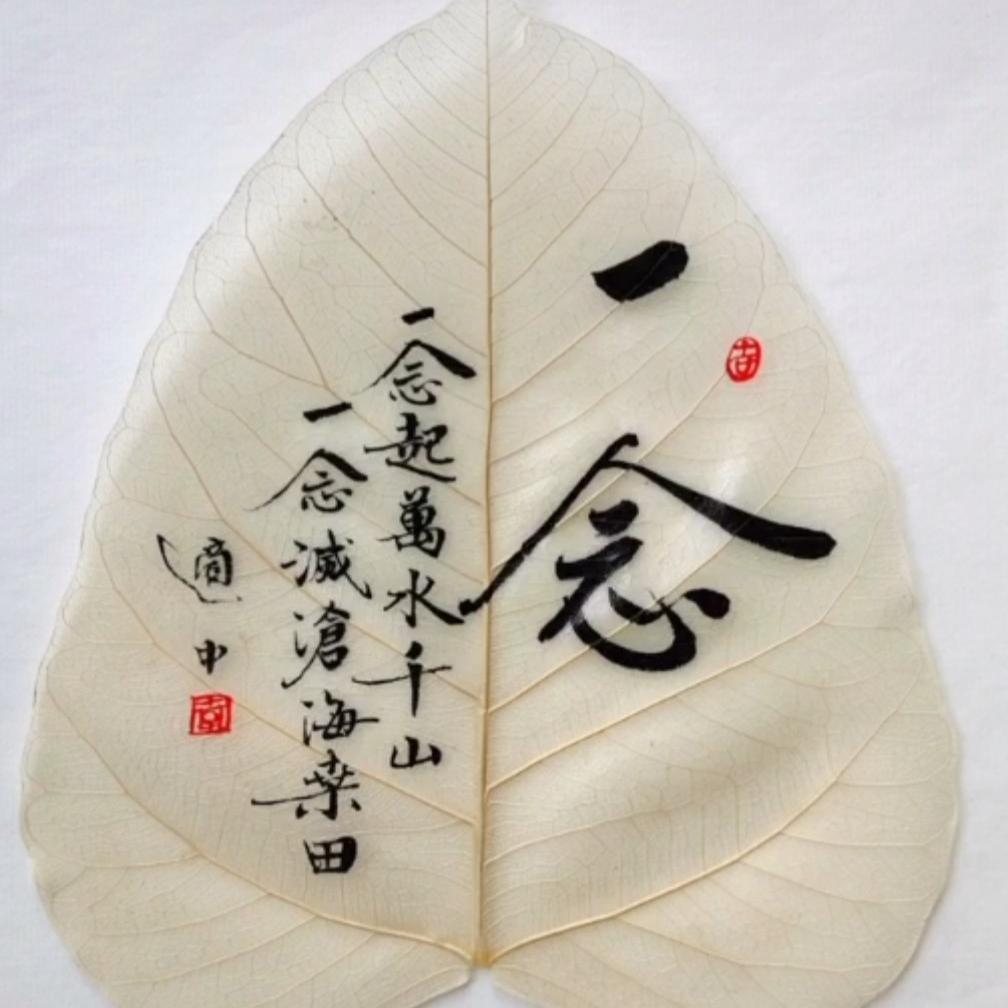 一念
一念起萬水千山
一念滅滄海桑田
適中